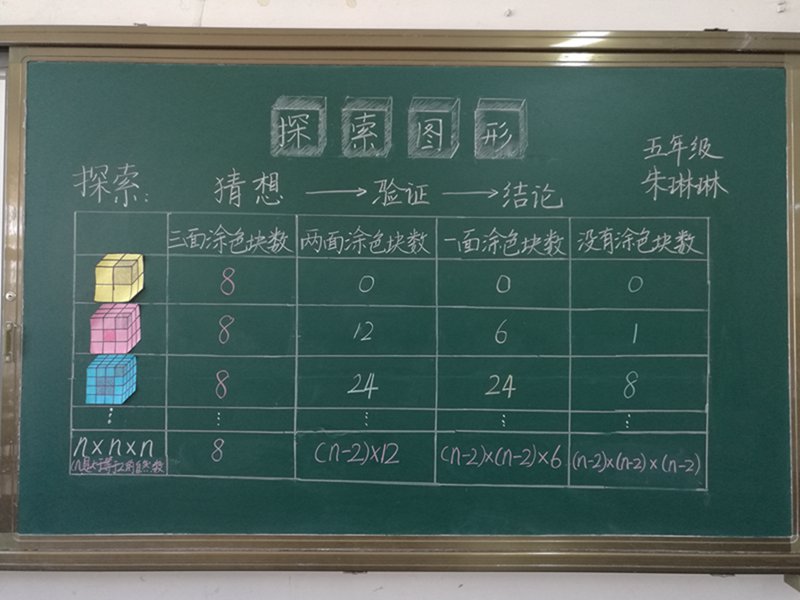 探索图形
五年级
朱琳琳
探索: 猜想 → 验证 → 结论
三面涂色块数 两面涂色块数 一面涂色块数 没有涂色块数
8 0 0 0
8 12 6 1
8 24 24 8
⋮ ⋮ ⋮ ⋮ ⋮
n×n×n 8 (n-2)×12 (n-2)×(n-2)×6 (n-2)×(n-2)×(n-2)
(n是大于等于2的自然数